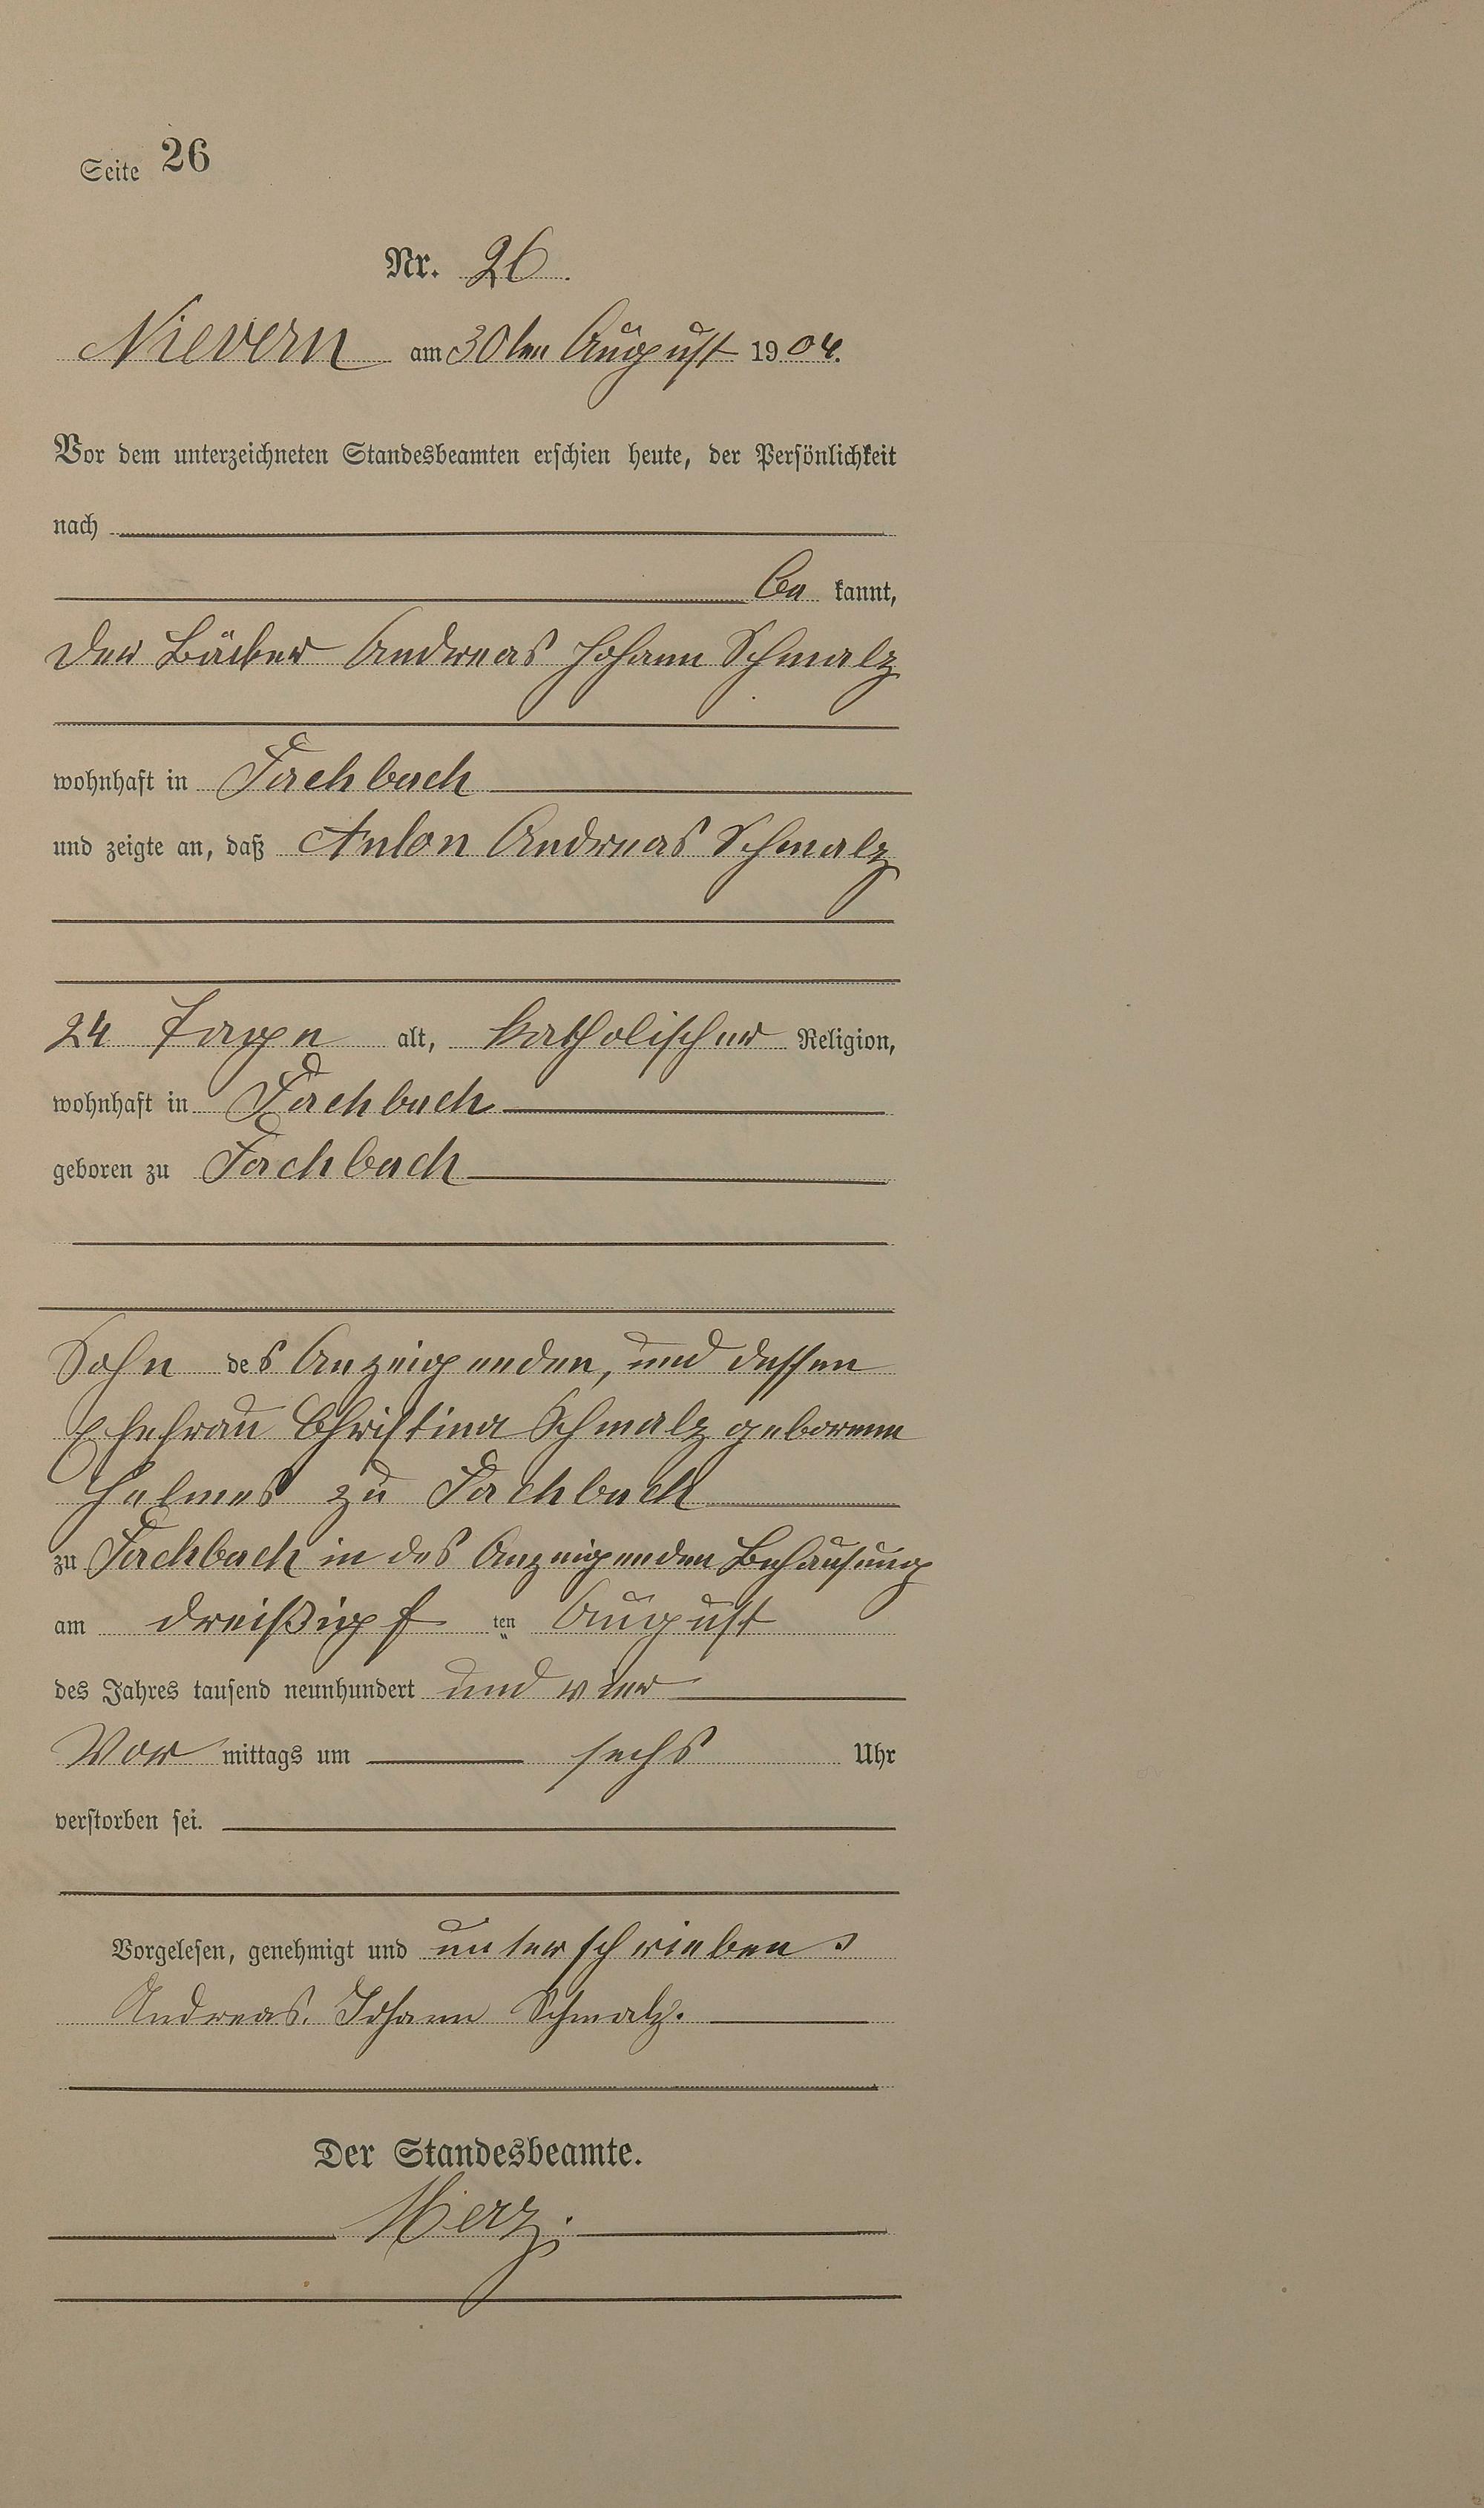 Seite 26
Nr. 26.
Nievern am 30ten August 1904.
Vor dem unterzeichneten Standesbeamten erschien heute, der Persönlichkeit
nach
be kannt,
der Bäcker Andreas Johann Schmalz
wohnhaft in Fachbach
und zeigte an, daß Anton Andreas Schmalz
24 Tage alt, katholischer Religion,
wohnhaft in Fachbach
geboren zu Fachbach
Sohn des Anzeigenden, und dessen
Ehefrau Christina Schmalz geborene
zu Fachbach
zu Fachbach in des Anzeigenden Behausung
am dreißigs ten August
des Jahres tausend neunhundert und vier
Vor mittags um sechs Uhr
verstorben sei.
Vorgelesen, genehmigt und unterschrieben
Andreas. Johann Schmalz.
Der Standesbeamte.
Merz.